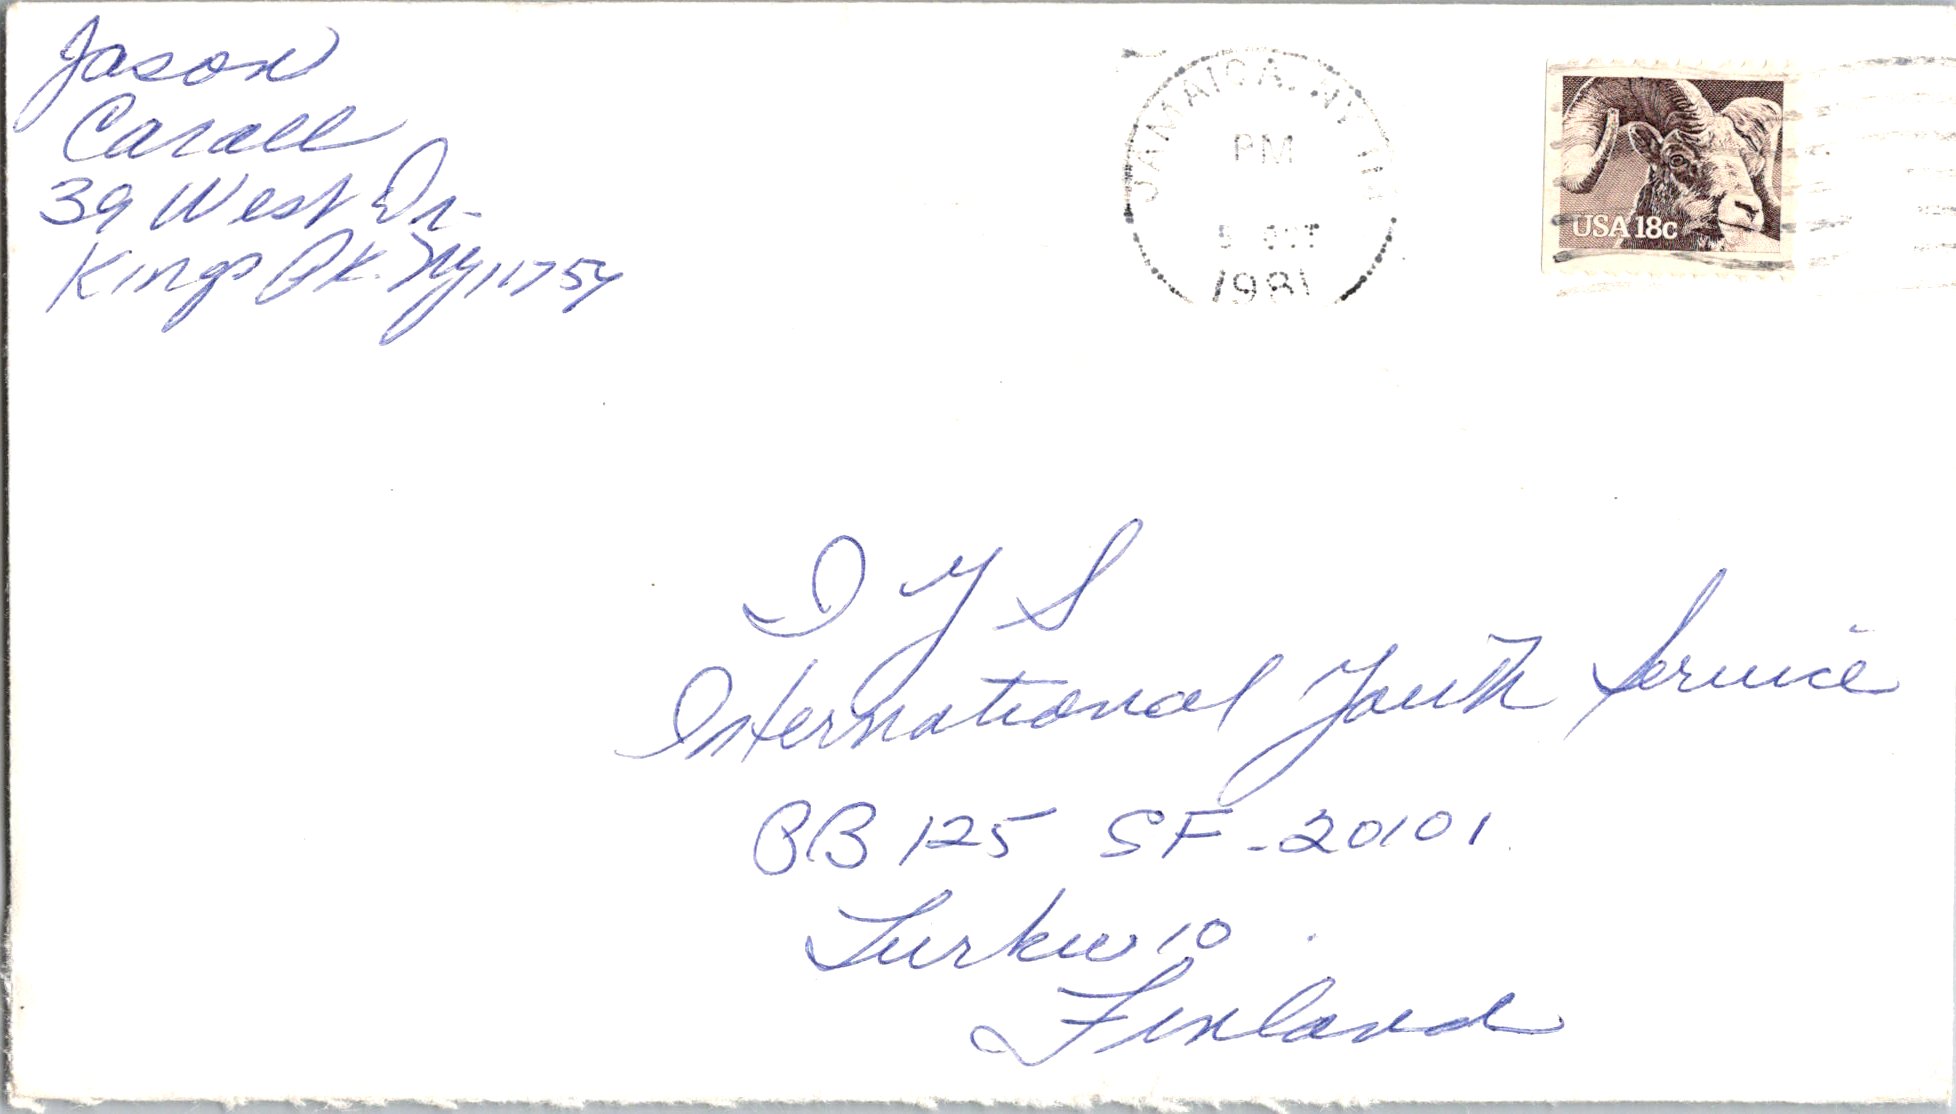 Jason
Carall
39 West Dr.
Kings Pk. Ny 11754
JAMAICA, NY 114
PM
5 OCT
1981
USA 18c
I Y S
International Youth Service
PB 125 SF-20101
Turku 10
Finland